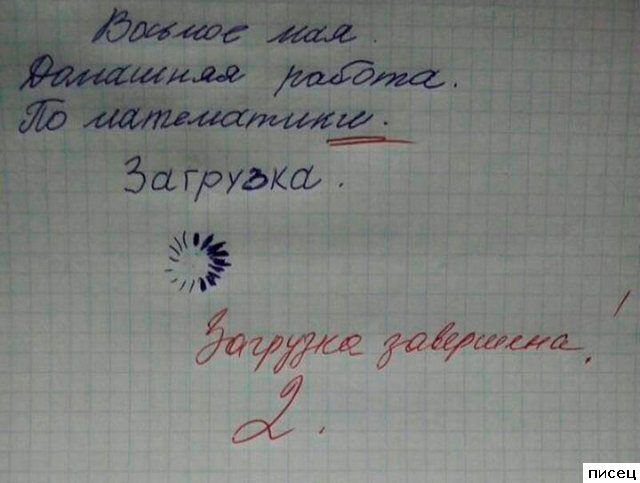 Восьмое мая.
Домашняя работа.
По математики.
Загрузка.
Загрузка завершена!
2.
писец